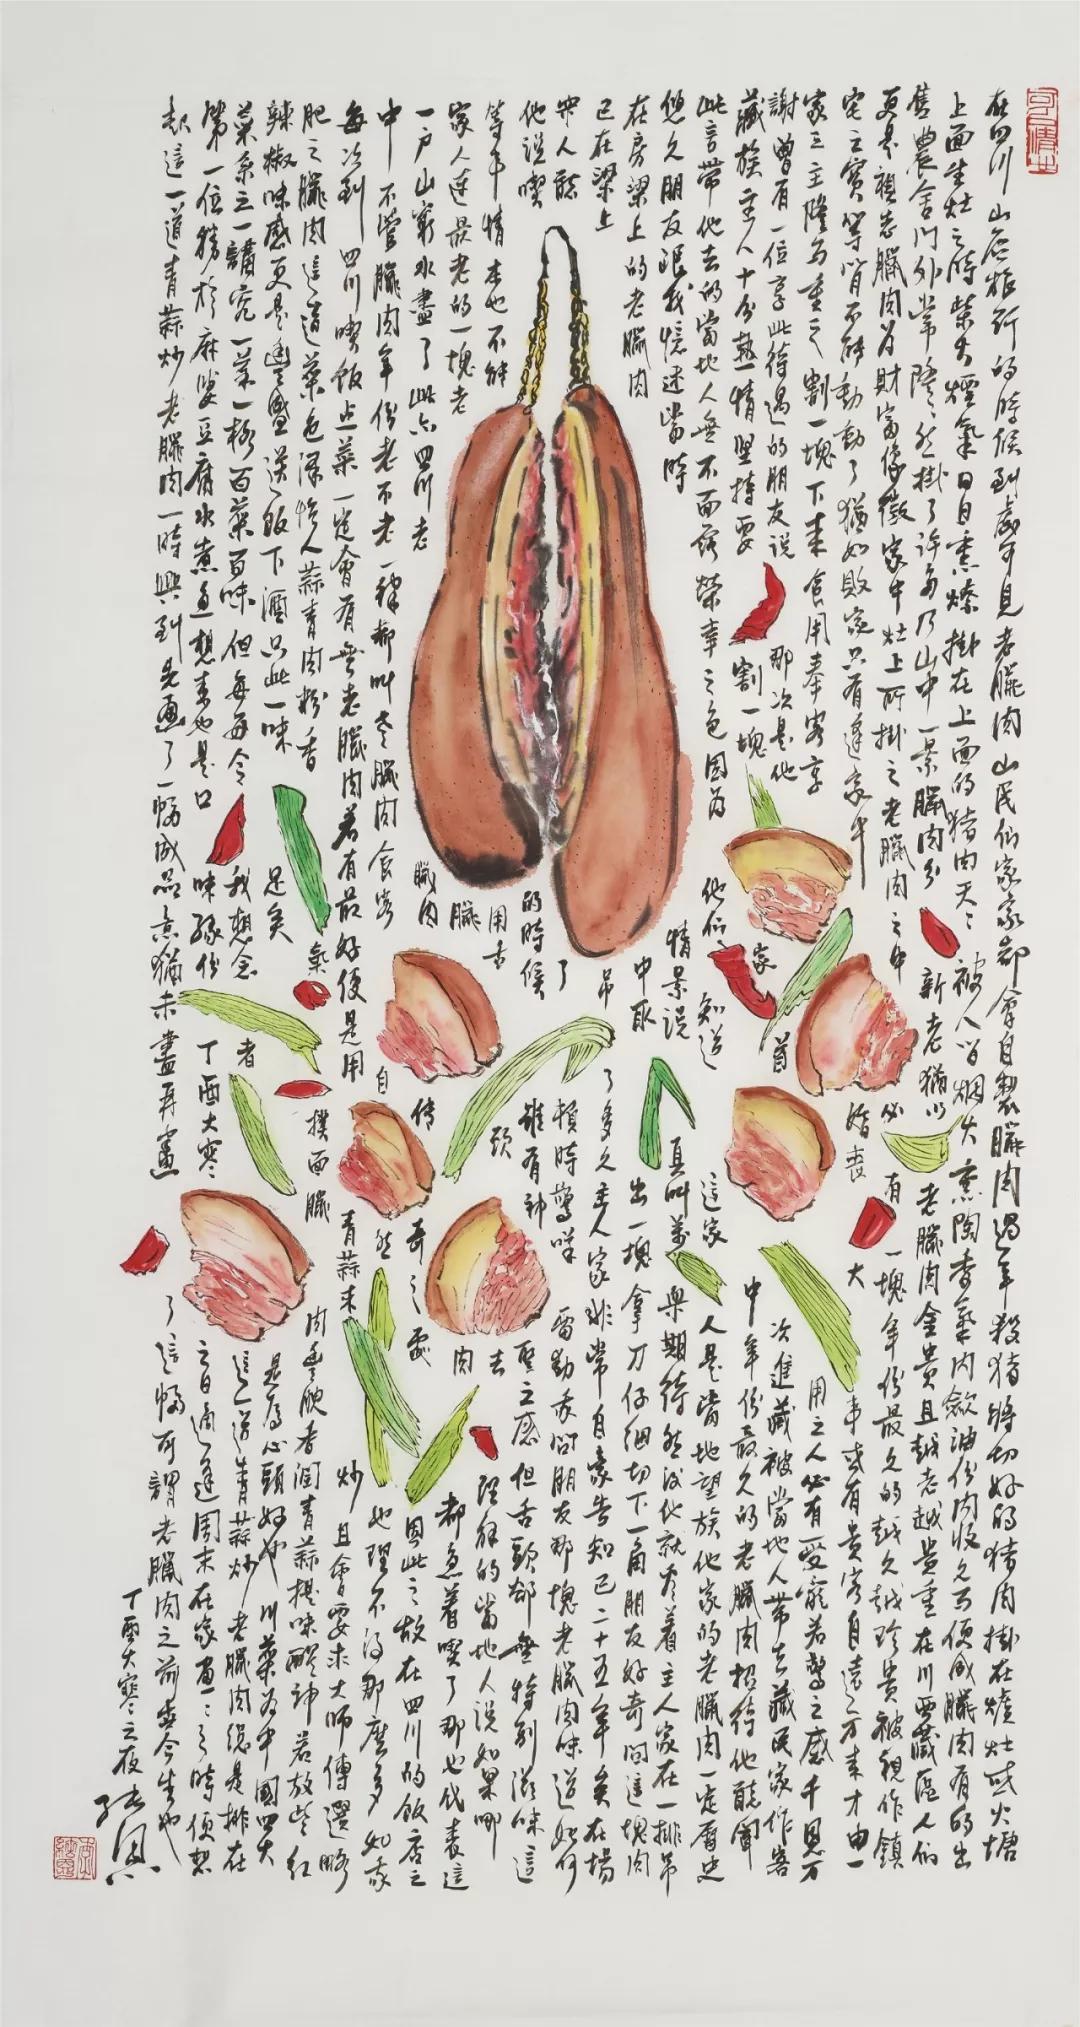 在四川山居旅行的時候到處可見老臘肉山民們家家都會自製臘肉過年殺猪將切好的猪肉掛在燒灶或火塘
上面生灶之時柴火煙氣日日熏燎掛在上面的猪肉天天被人間烟火熏陶香氣內斂油份肉收久而便成臘肉有的出
售農舍門外常隆隆然掛了許多乃山中一景臘肉分新老猶以老臘肉金貴且越老越貴重在川西藏區人們
更是視老臘肉為財富像徵家中灶上所掛之老臘肉之中必有一塊年份最久的越久越珍貴被視作鎮
宅之寶等背不輕動動了猶如敗家只有逢家中婚喪大事或有貴客自遠方來才由一
家之主隆而重之割一塊下來食用奉客享用之人必有受寵若驚之感千恩万
謝曾有一位享此待遇的朋友說那次是他首次進藏被當地人帶去藏民家作客
藏族主人十分熱情堅持要割一塊家中年份最久的老臘肉招待他聽聞
此言帶他去的當地人無不面露榮幸之色因為他們知道這家人是當地望族他家的老臘肉一定歷史
悠久朋友跟我憶述當時情景說真叫萬眾期待然後他就看着主人家在一排吊
在房梁上的老臘肉中取出一塊拿刀仔細切下一角朋友好奇問這塊肉
已在梁上吊了多久主人家非常自豪告知已二十五年矣在場
眾人聽了頓時驚嘆我問朋友那塊老臘肉味道如何
他說喫的時候雖有神聖之感但舌頭却無特別滋味這
等年情本也不能用舌頭去理解的當地人說如果哪
家人連最老的一塊老臘肉都急着喫了那也代表這
一户山窮水盡了此亦四川老臘肉傳奇之處因此之故在四川的飯店之
中不管臘肉年份老不老一律都叫老臘肉食客自然也理不得那麼多如我
每次到四川喫飯点菜一定會有無老臘肉若有最好便是用青蒜來炒且會要求大師傅選略
肥之臘肉這道菜色澤惹人蒜青肉粉香氣撲面臘肉豐腴香潤青蒜提味醒神若放些紅
辣椒味感更是豐盛送飯下酒只此一味是矣是為心頭好也川菜為中國四大
菜系之一講究一菜一格百菜百味但每每令我想念者這一道青蒜炒老臘肉總是排在
第一位勝於麻婆豆腐水煮魚想來也是口味緣份丁酉大寒之日適逢周末在家畫畫之時便想
起這一道青蒜炒老臘肉一時興到先畫了一幅成品意猶未盡再畫了這幅可謂老臘肉之前世今生也
丁酉大寒之夜